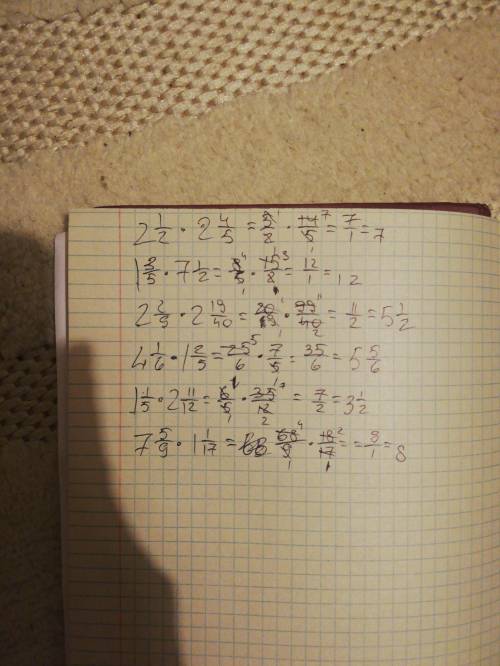 2 1/2 · 2 4/5 = 5/2 · 14/5 = 7/1 = 7
1 3/5 · 7 1/2 = 8/5 · 15/2 = 12/1 = 12
2 2/9 · 2 19/40 = 20/9 · 99/40 = 11/2 = 5 1/2
4 1/6 · 1 2/5 = 25/6 · 7/5 = 35/6 = 5 5/6
1 1/5 · 2 11/12 = 6/5 · 35/12 = 7/2 = 3 1/2
7 5/9 · 1 1/17 = 68/9 · 18/17 = = 8/1 = 8